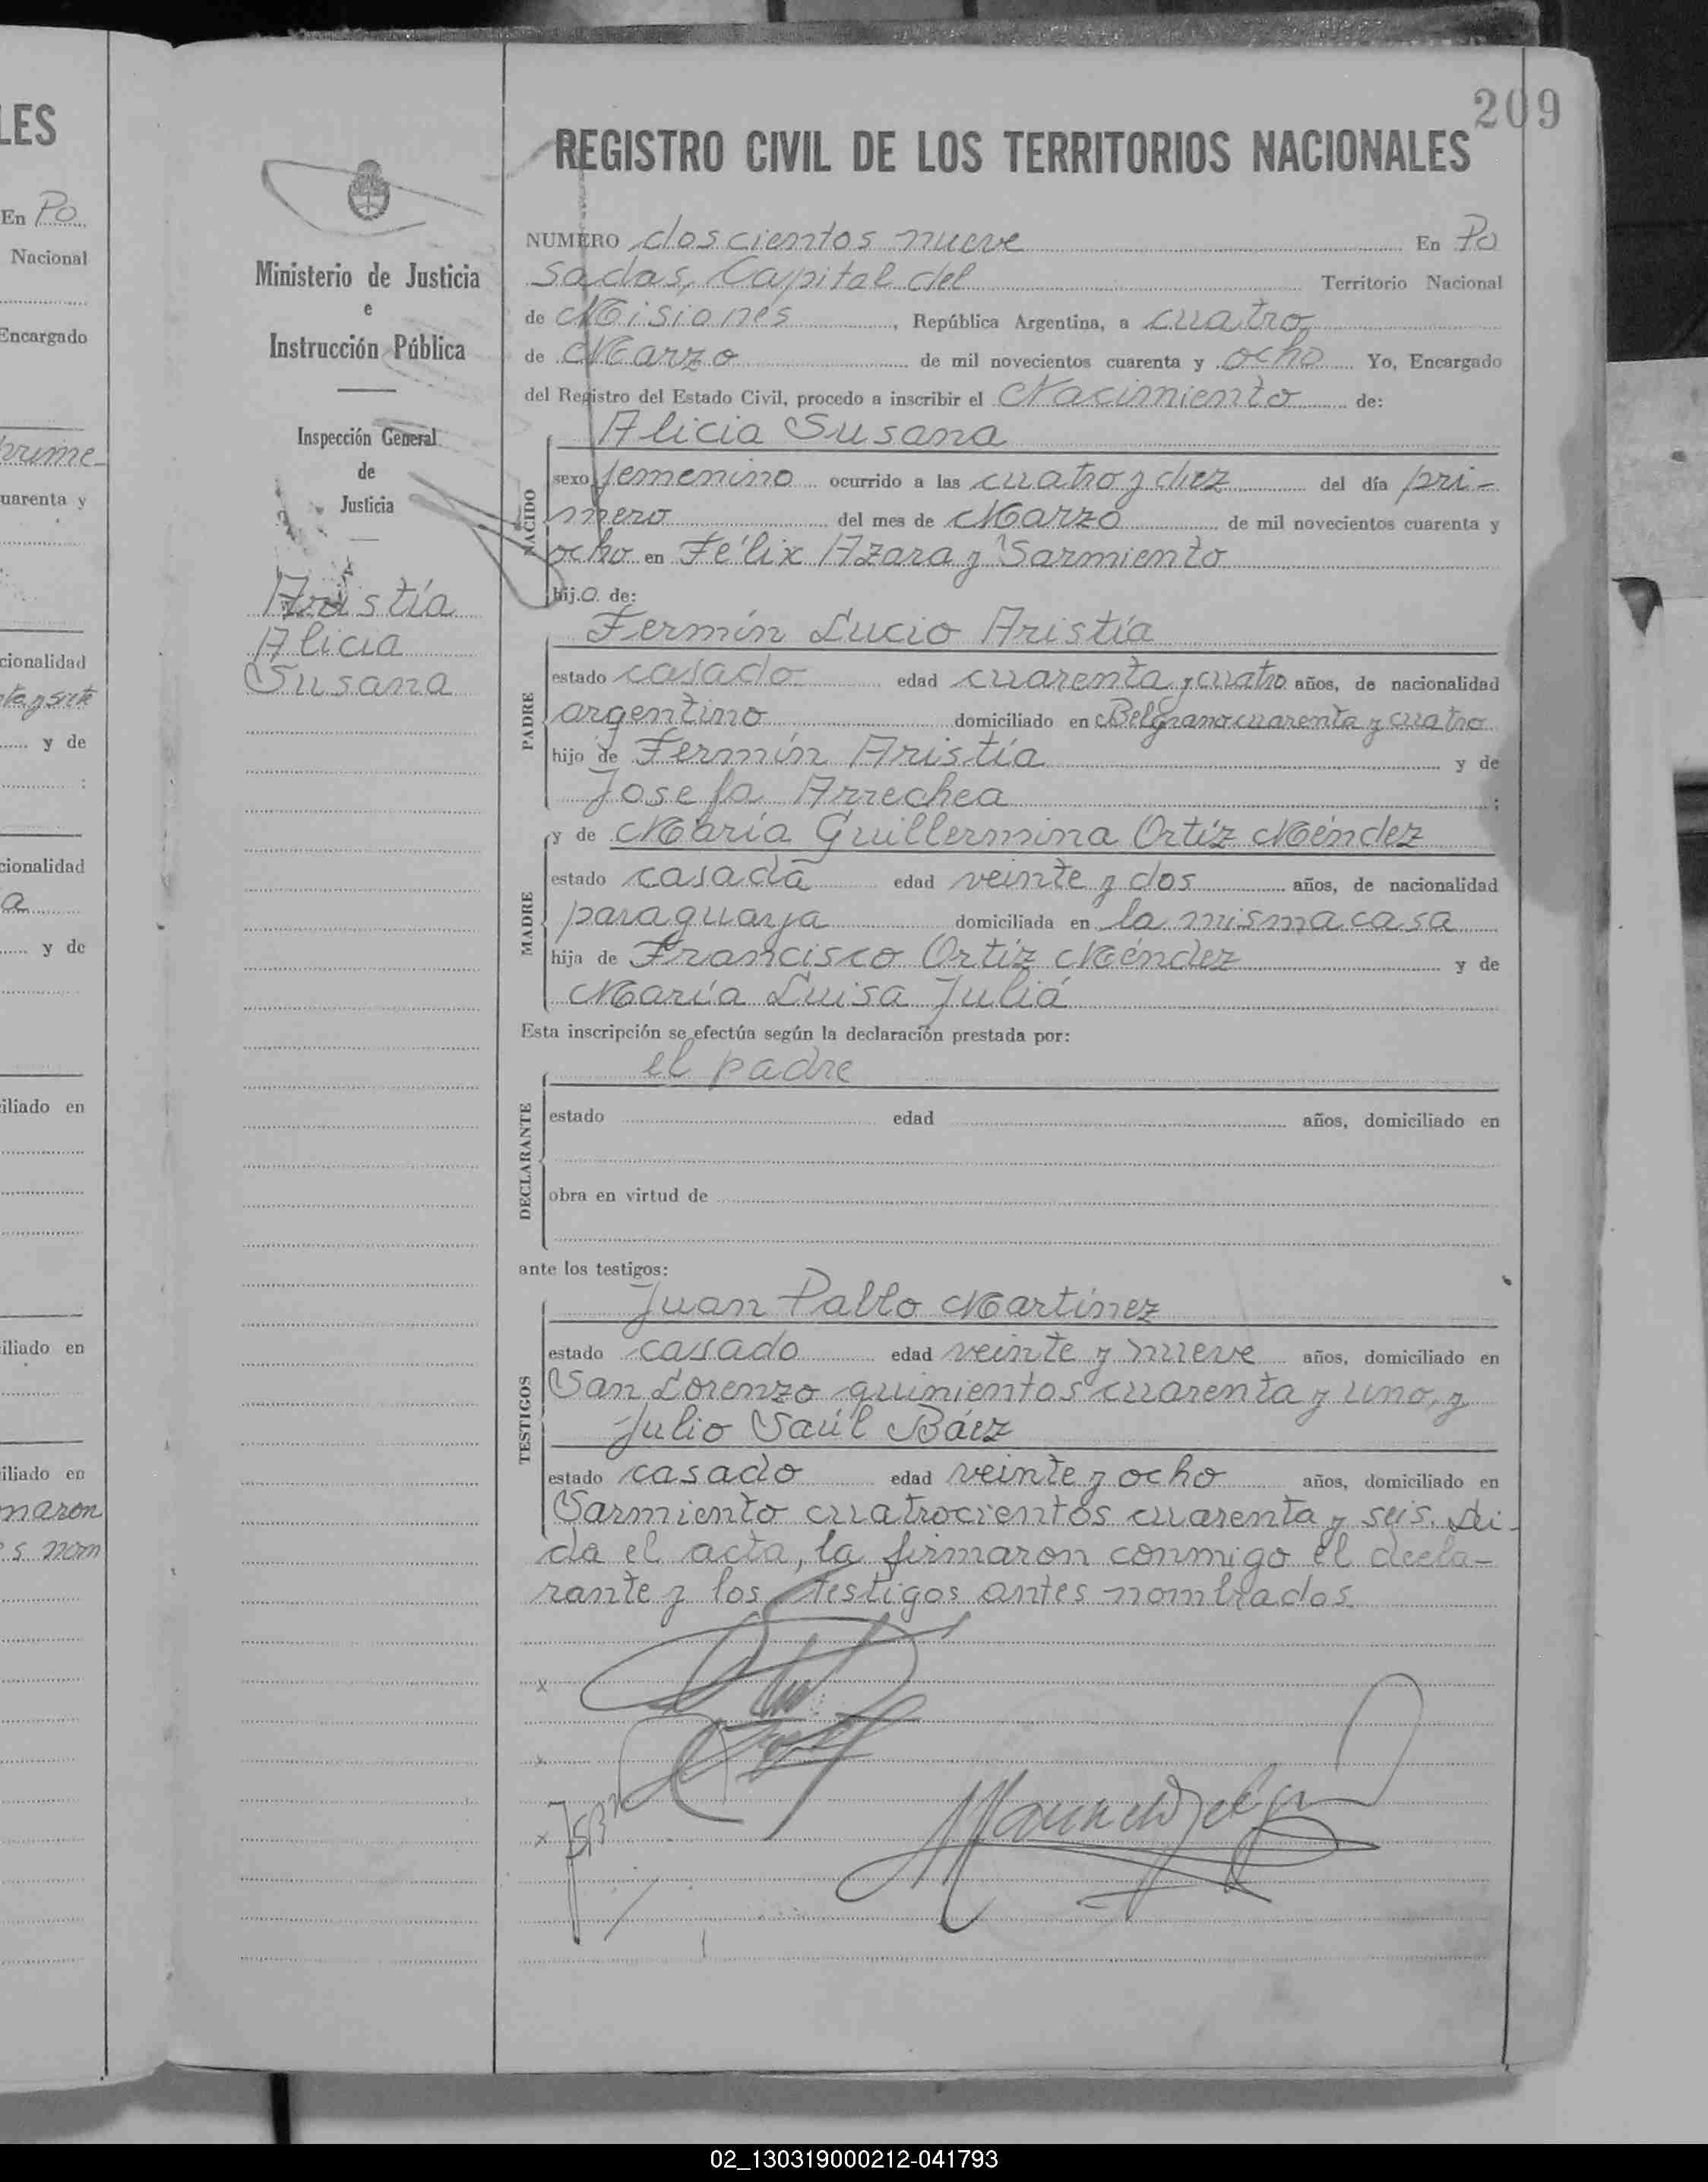 LES
En Po
Nacional
Encargado
prime-
uarenta y
cionalidad
nte y siete
y de
;
cionalidad
a
y de
iliado en
iliado en
iliado en
maron
s nom
209
Ministerio de Justicia
e
Instrucción Pública
Inspección General
de
Justicia
Aristía
Alicia
Susana
REGISTRO CIVIL DE LOS TERRITORIOS NACIONALES
NUMERO doscientos nueve En Po
sadas, Capital del Territorio Nacional
de Misiones, República Argentina, a cuatro
de Marzo de mil novecientos cuarenta y ocho Yo, Encargado
del Registro del Estado Civil, procedo a inscribir el Nacimiento de:
Alicia Susana
NACIDO
sexo femenino ocurrido a las cuatro y diez del día pri-
mero del mes de Marzo de mil novecientos cuarenta y
ocho en Félix Azara y Sarmiento
hij.a de:
Fermín Lucio Aristía
PADRE
estado casado edad cuarenta y cuatro años, de nacionalidad
argentino domiciliado en Belgrano cuarenta y cuatro
hijo de Fermín Aristía y de
Josefa Arrechea ;
y de María Guillermina Ortíz Méndez
MADRE
estado casada edad veinte y dos años, de nacionalidad
paraguaya domiciliada en la misma casa
hija de Francisco Ortíz Méndez y de
María Luisa Juliá
Esta inscripción se efectúa según la declaración prestada por:
el padre
DECLARANTE
estado edad años, domiciliado en
obra en virtud de
ante los testigos:
Juan Pablo Martínez
TESTIGOS
estado casado edad veinte y nueve años, domiciliado en
San Lorenzo quinientos cuarenta y uno, y
Julio Saúl Báez
estado casado edad veinte y ocho años, domiciliado en
Sarmiento cuatrocientos cuarenta y seis. Leí-
da el acta, la firmaron conmigo el decla-
rante y los testigos antes nombrados.
x
x
x
02_130319000212-041793